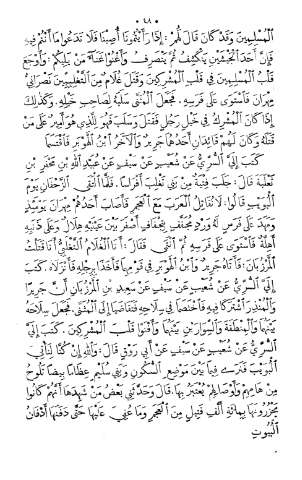 ٤٨
المسلمين وقد كان قال لهم: إذا رأيتمونا أصبنا فلا تدعوا ما أنتم فيه
فإن أحد الجيشين ينكشف ثم ينصرف والزموا مصافكم وأغنوا عنا من يليكم، وأوجع
قلب المسلمين في قلب المشركين وقتل غلام من التغلبيين نصراني
مهران فاستوى على فرسه، فجعل المثنى سلبه لصاحب خيله، وكذلك
إذا كان المشرك في خيل رجل فقتل وسلب فهو للذي هو أمير على من
قتله وكان لهم قائدان أحدهما جرير والآخر ابن الهوبر فاقتسما
كتب إلي السري عن شعيب عن سيف عن عبيد الله بن محفز عن
ثعلبة قال: جلب فتية من بني تغلب أفراسا، فلما التقى الزحفان يوم
البويب قالوا: لا نقاتل العرب مع العجم فأصاب أحدهم مهران يومئذ
ومهران على فرس له ورد مجفف بتجفاف أصفر بين عينيه هلال وعلى ذنبه
أهلة فاستوى على فرسه ثم انتمى فقال: أنا الغلام التغلبي أنا قتلت
المرزبان، فأتاه جرير وابن الهوبر في قومهما فأخذا برجله فأنزلاه، كتب
إلي السري عن شعيب عن سيف عن سعيد بن المرزبان أن جريرا
والمنذر اشتركا فيه فاختصما في سلاحه فتقاضيا إلى المثنى، فجعل سلاحه
بينهما والمنطقة والسوارين بينهما وأفنوا قلب المشركين، كتب إلي
السري عن شعيب عن سيف عن أبي روق قال: والله إن كنا لنأتي
البويب فنرى فيما بين موضع السكون وبني سليم عظاما بيضا تلوح
من هامهم وأوصالهم يعتبر بها، قال وحدثني بعض من شهدها أنهم كانوا
يحزرونها بمائة ألف قتيل من العجم وما عفي عليها حتى دفنها أدفان
البيوت